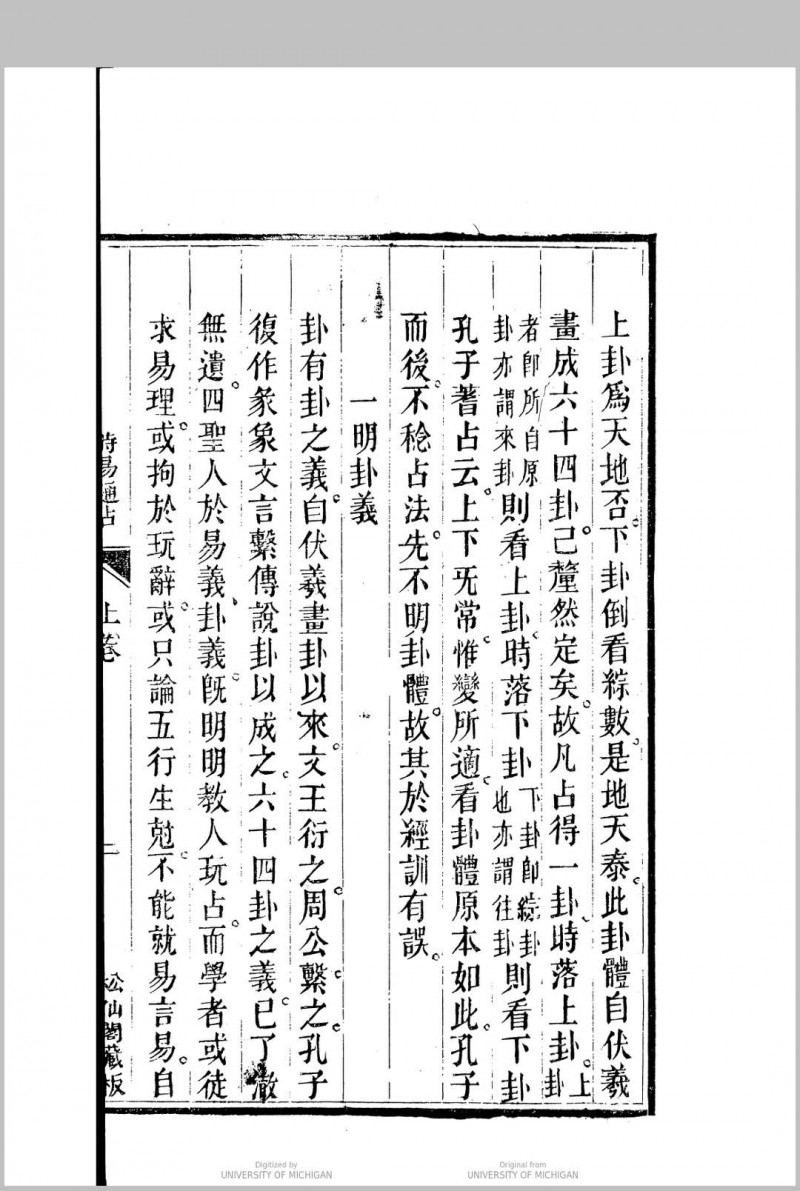 上卦爲天地否。下卦倒看綜數。是地天泰。此卦體自伏羲
畫成六十四卦。已釐然定矣。故凡占得一卦、時落上卦。上卦
者卽所自原卦亦謂來卦則看上卦、時落下卦下卦卽綜卦也亦謂往卦則看下卦
孔子蓍占云。上下旡常。惟變所適。看卦體原本如此。孔子
而後。不稔占法。先不明卦體。故其於經訓有誤。
一明卦義
卦有卦之義。自伏羲畫卦以來。文王衍之。周公繫之。孔子
復作彖象文言繫傳說卦以成之。六十四卦之義。已了澈
無遺。四聖人於易義、卦義。旣明明教人玩占。而學者或徒
求易理。或拘於玩辭。或只論五行生尅。不能就易言易。自
時易通占
上卷
二
松仙閣藏板
Digitized by
UNIVERSITY OF MICHIGAN
Original from
UNIVERSITY OF MICHIGAN